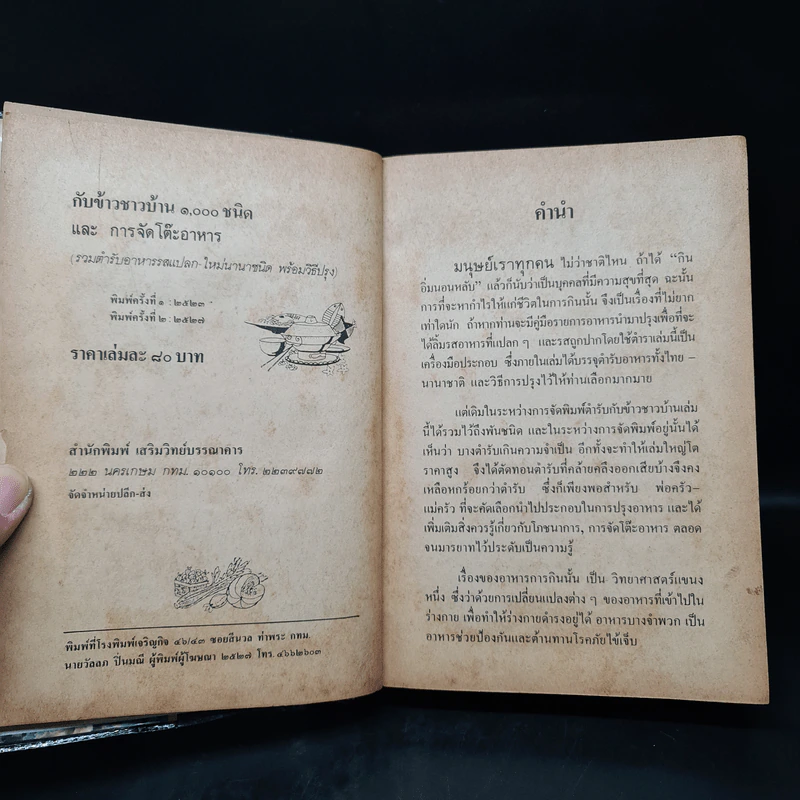 กับข้าวชาวบ้าน ๑,๐๐๐ ชนิด
และ การจัดโต๊ะอาหาร
(รวมตำรับอาหารรสแปลก-ใหม่นานาชนิด พร้อมวิธีปรุง)
พิมพ์ครั้งที่ ๑ : ๒๕๒๓
พิมพ์ครั้งที่ ๒ : ๒๕๒๗
ราคาเล่มละ ๘๐ บาท
สำนักพิมพ์ เสริมวิทย์บรรณาคาร
๒๒๒ นครเกษม กทม. ๑๐๑๐๐ โทร. ๒๒๓๙๗๗๒
จัดจำหน่ายปลีก-ส่ง
พิมพ์ที่โรงพิมพ์เจริญกิจ ๔๖/๔๓ ซอยสีนวล ท่าพระ กทม.
นายวัลลภ ปิ่นมณี ผู้พิมพ์ผู้โฆษณา ๒๕๒๗ โทร. ๔๖๖๒๖๐๓
คำนำ
มนุษย์เราทุกคน ไม่ว่าชาติไหน ถ้าได้ “กิน
อิ่มนอนหลับ” แล้วก็นับว่าเป็นบุคคลที่มีความสุขที่สุด ฉะนั้น
การที่จะหากำไรให้แก่ชีวิตในการกินนั้น จึงเป็นเรื่องที่ไม่ยาก
เท่าใดนัก ถ้าหากท่านจะมีคู่มือรายการอาหารนำมาปรุงเพื่อที่จะ
ได้ลิ้มรสอาหารที่แปลก ๆ และรสถูกปากโดยใช้ตำราเล่มนี้เป็น
เครื่องมือประกอบ ซึ่งภายในเล่มได้บรรจุตำรับอาหารทั้งไทย –
นานาชาติ และวิธีการปรุงไว้ให้ท่านเลือกมากมาย
แต่เดิมในระหว่างการจัดพิมพ์ตำรับกับข้าวชาวบ้านเล่ม
นี้ได้รวมไว้ถึงพันชนิด และในระหว่างการจัดพิมพ์อยู่นั้นได้
เห็นว่า บางตำรับเกินความจำเป็น อีกทั้งจะทำให้เล่มใหญ่โต
ราคาสูง จึงได้ตัดทอนตำรับที่คล้ายคลึงออกเสียบ้างจึงคง
เหลือหกร้อยกว่าตำรับ ซึ่งก็เพียงพอสำหรับ พ่อครัว–
แม่ครัว ที่จะคัดเลือกนำไปประกอบในการปรุงอาหาร และได้
เพิ่มเติมสิ่งควรรู้เกี่ยวกับโภชนาการ, การจัดโต๊ะอาหาร ตลอด
จนมารยาทไว้ประดับเป็นความรู้
เรื่องของอาหารการกินนั้น เป็น วิทยาศาสตร์แขนง
หนึ่ง ซึ่งว่าด้วยการเปลี่ยนแปลงต่าง ๆ ของอาหารที่เข้าไปใน
ร่างกาย เพื่อทำให้ร่างกายดำรงอยู่ได้ อาหารบางจำพวก เป็น
อาหารช่วยป้องกันและต้านทานโรคภัยไข้เจ็บ